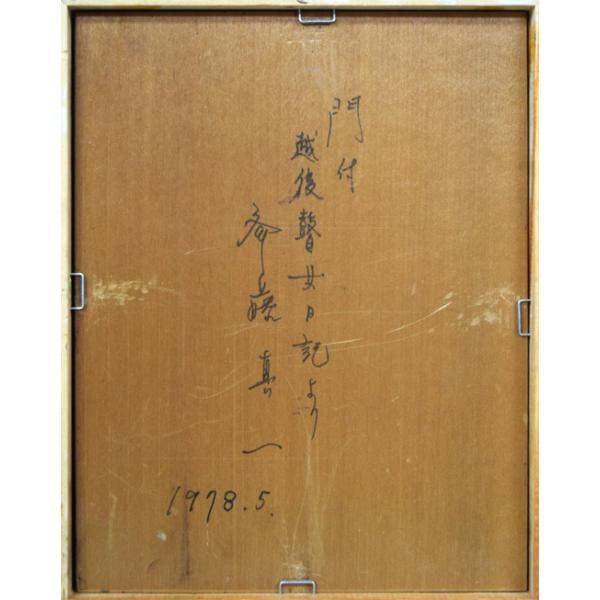 門付
越後瞽女日記より
斉藤真一
1978.5.